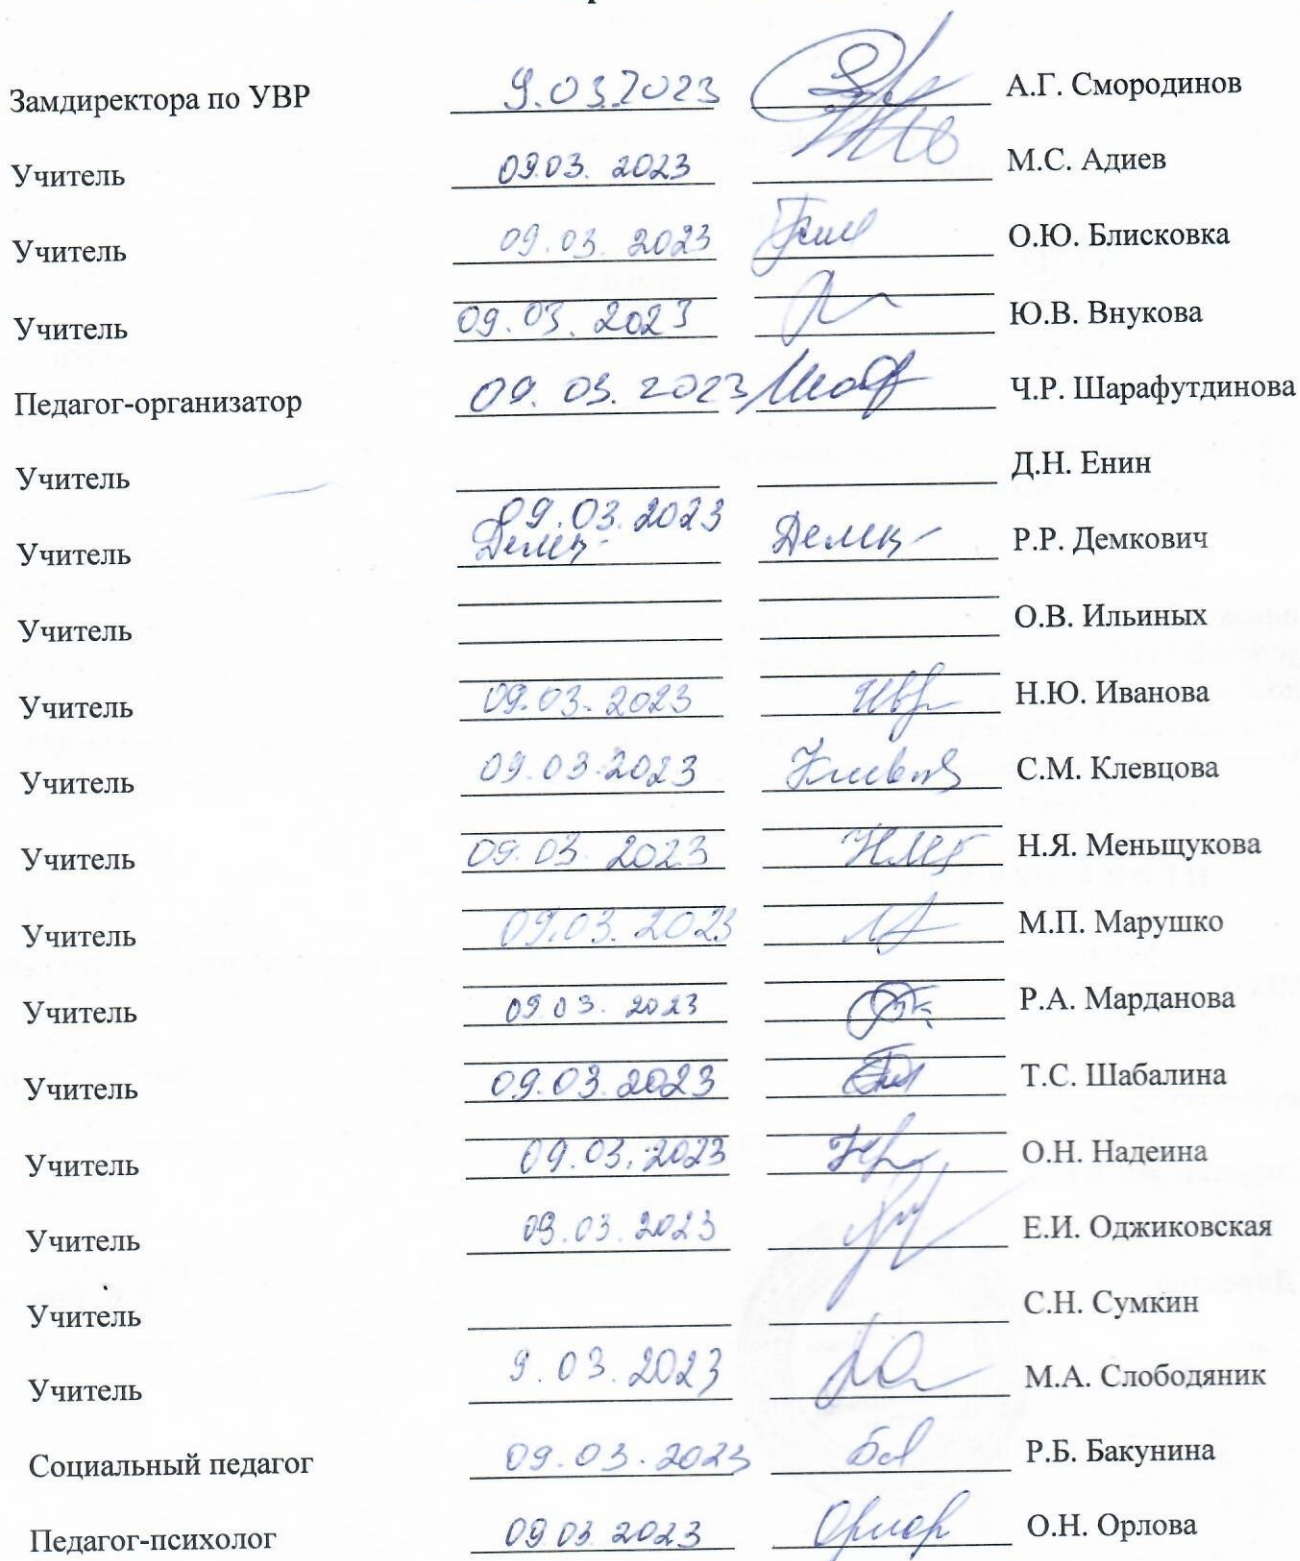 Замдиректора по УВР 9.03.2023 А.Г. Смородинов
Учитель 09.03. 2023 М.С. Адиев
Учитель 09.03. 2023 О.Ю. Блисковка
Учитель 09.03.2023 Ю.В. Внукова
Педагог-организатор 09.03.2023 Ч.Р. Шарафутдинова
Учитель Д.Н. Енин
09.03.2023
Учитель Р.Р. Демкович
Учитель О.В. Ильиных
Учитель 09.03.2023 Н.Ю. Иванова
Учитель 09.03.2023 С.М. Клевцова
Учитель 09.03 2023 Н.Я. Меньщукова
Учитель 09.03.2023 М.П. Марушко
Учитель 09.03.2023 Р.А. Марданова
Учитель 09.03.2023 Т.С. Шабалина
Учитель 09.03.2023 О.Н. Надеина
Учитель 09.03.2023 Е.И. Оджиковская
Учитель С.Н. Сумкин
Учитель 9.03.2023 М.А. Слободяник
Социальный педагог 09.03.2023 Р.Б. Бакунина
Педагог-психолог 09.03.2023 О.Н. Орлова